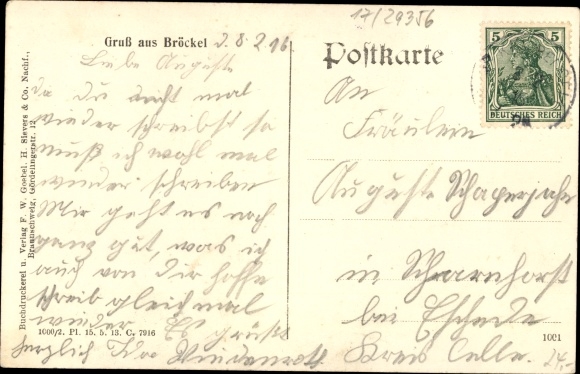 17/29356
Gruß aus Bröckel d. 8.2.16
Liebe Auguste
da du nicht mal
wieder schreibst so
muß ich wohl mal
wieder schreiben
Mir geht es noch
ganz gut, was ich
auch von dir hoffe
schreib gleich mal
wieder Es grüßt
herzlich Ida Wiedenroth
Postkarte
An
Fräulein
Auguste Schaperjahn
in Scharnhorst
bei Eschede
Kreis Celle.
5 5
DEUTSCHES REICH
Buchdruckerei u. Verlag F. W. Goebel. H. Sievers & Co. Nachf.,
Braunschweig, Gördelingerstr. 12.
1000/2. Pl. 15. 5. 13. C. 7916
1001
24,-